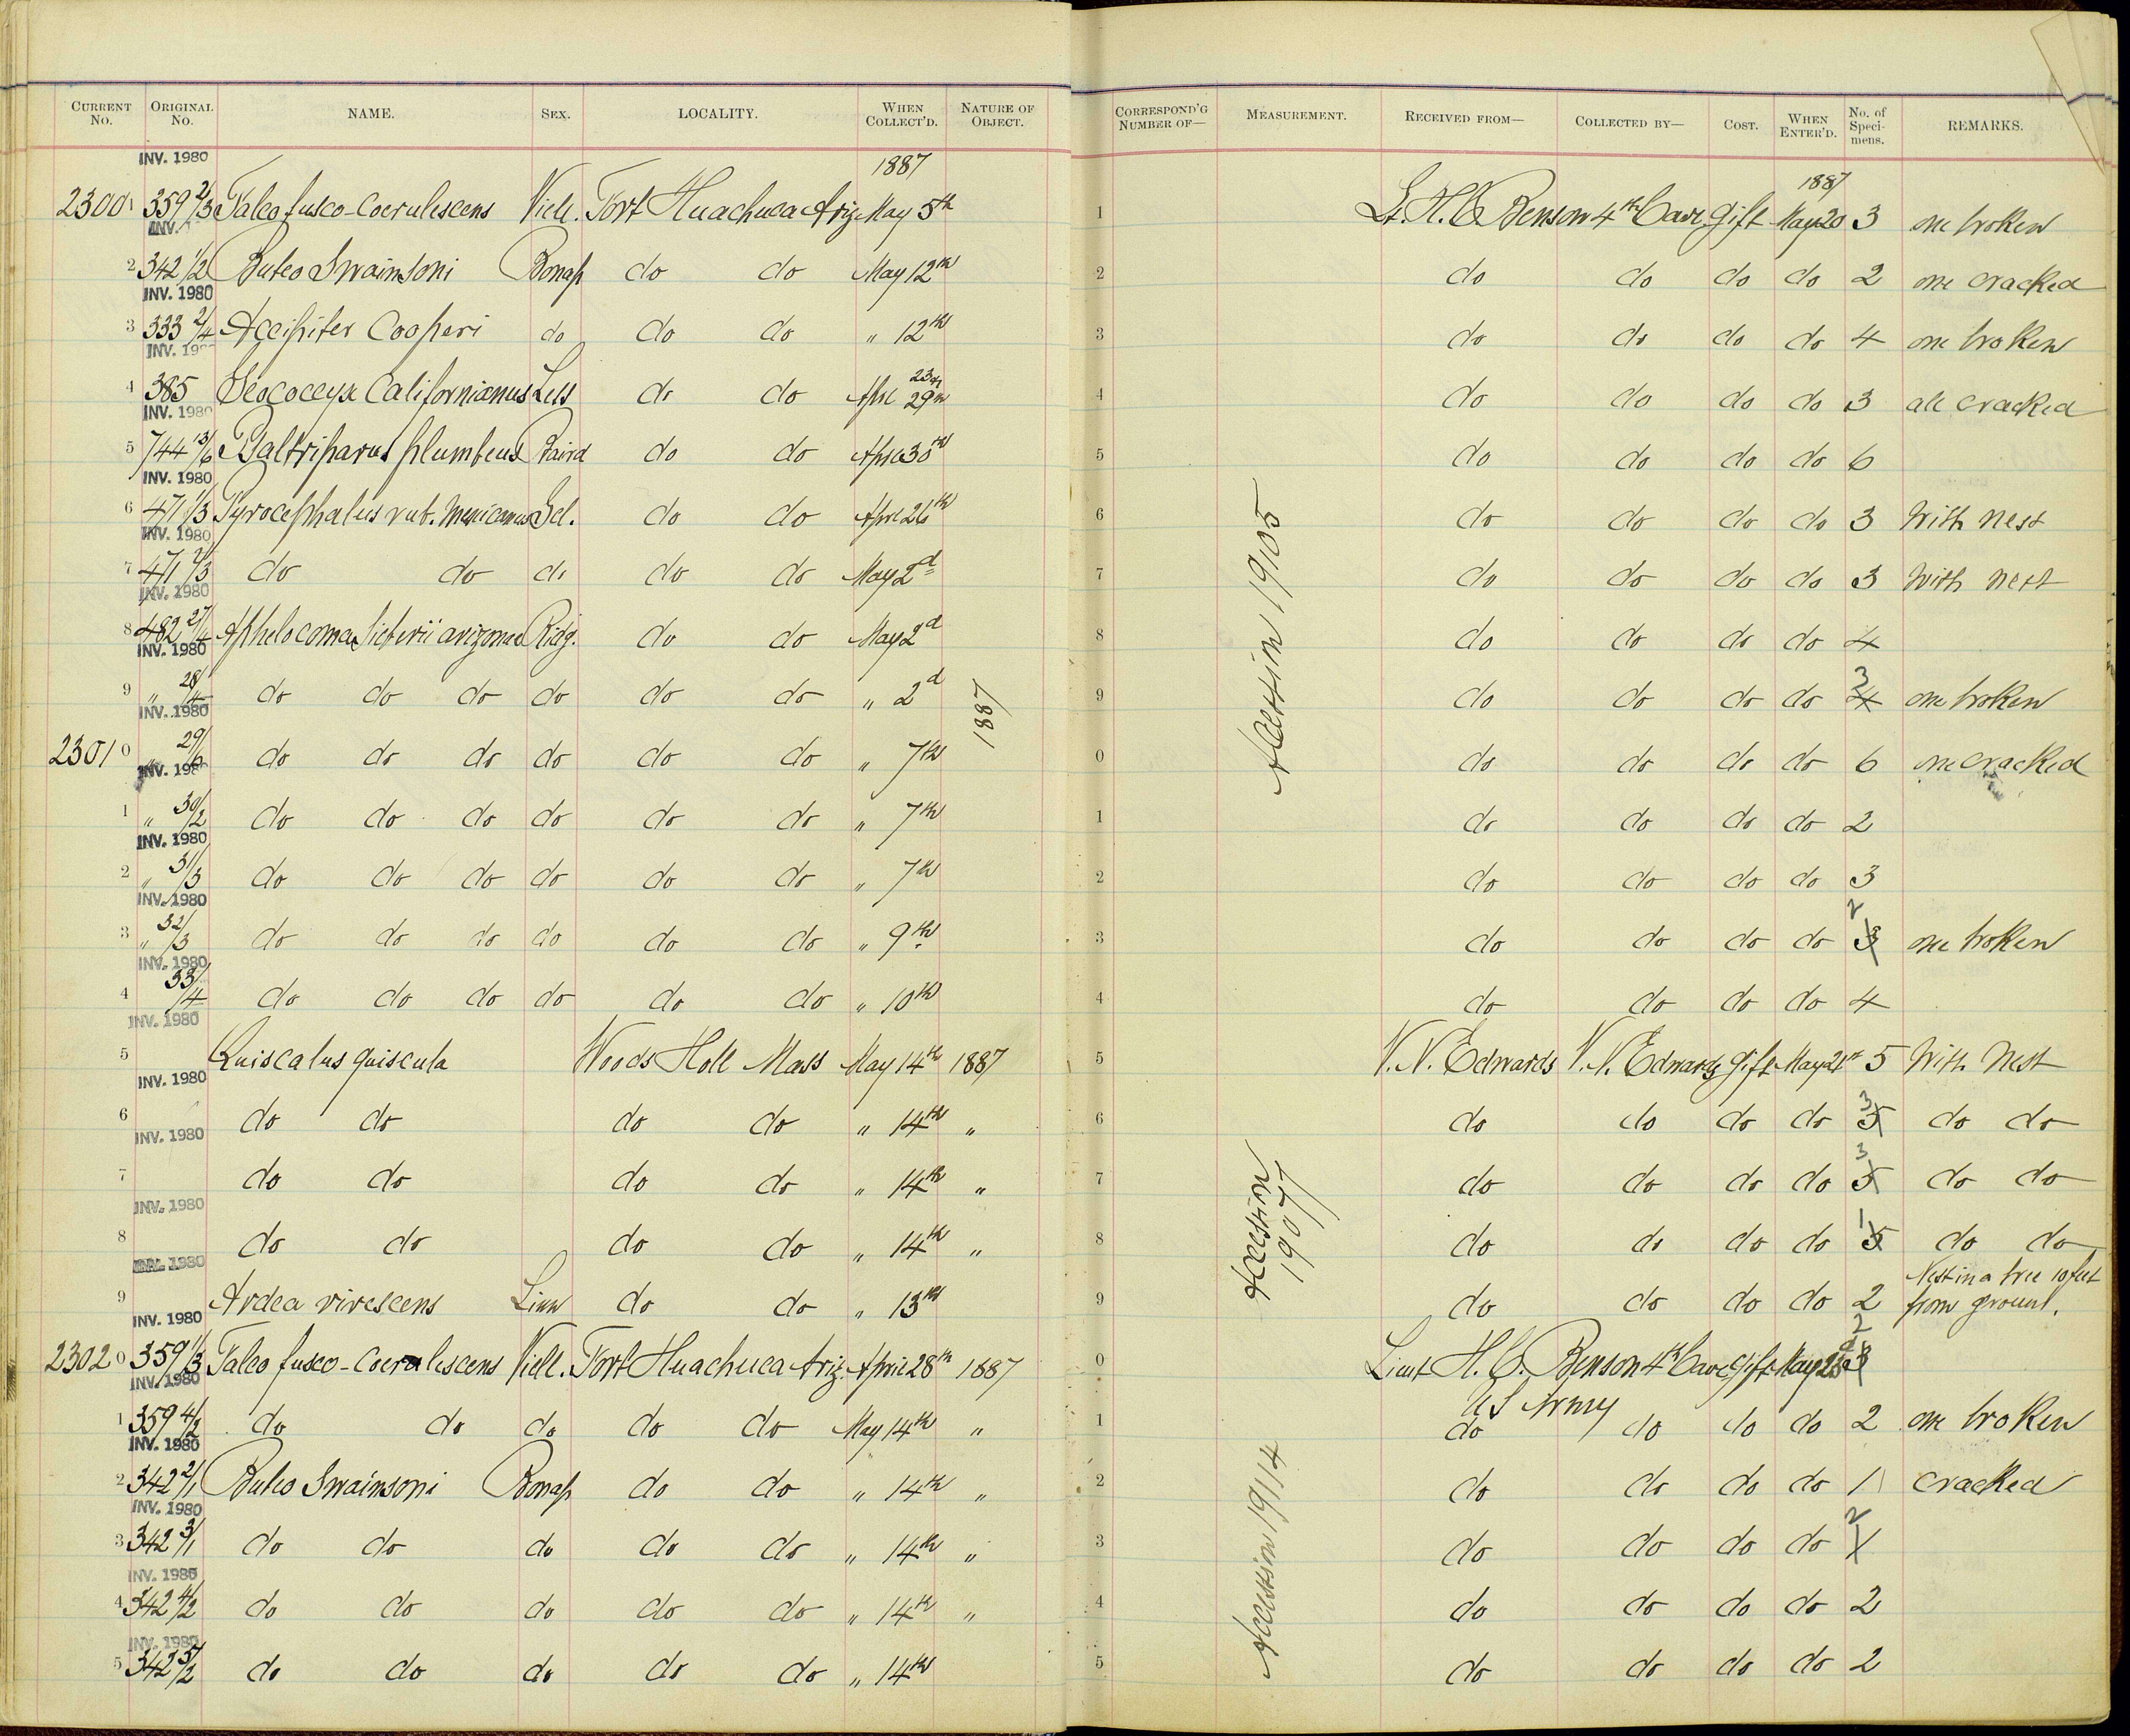 CURRENT No. ORIGINAL No. NAME. SEX. LOCALITY. WHEN COLLECT'D. NATURE OF OBJECT. CORRESPOND'G NUMBER OF— MEASUREMENT. RECEIVED FROM— COLLECTED BY— COST. WHEN ENTER'D. No. of Specimens. REMARKS.
INV. 1980 1887 1887
23001 359 2/3 Falco fusco-coerulescens Vieill. Fort Huachuca Ariz May 5th 1 Lt. H. C. Benson 4th Cav. gift May 20 3 one broken
INV.
2 342 1/2 Buteo Swainsoni Bonap do do May 12th 2 do do do do 2 one cracked
INV. 1980
3 333 2/4 Accipiter Cooperi do do do " 12th 3 do do do do 4 one broken
INV. 1980
4 385 Geococcyx Californianus Less do do Apl 23d 29th 4 do do do do 3 all cracked
INV. 1980
5 744 13/6 Psaltriparus plumbeus Baird do do April 30th 5 do do do do 6
INV. 1980
6 471 1/3 Pyrocephalus rub. mexicanus Scl. do do April 26th 6 do do do do 3 With nest
INV. 1980
7 471 2/3 do do do do do May 2d 7 do do do do 3 With nest
INV. 1980
8 482 27/4 Aphelocoma Sieberii arizonae Ridg. do do May 2d 8 do do do do 4
INV. 1980
9 " 28/4 do do do do do do " 2d 9 do do do do 4 3 one broken
INV. 1980
1887
23010 " 29/6 do do do do do do " 7th 0 do do do do 6 one cracked
INV. 1980
1 " 30/2 do do do do do do " 7th 1 do do do do 2
INV. 1980
2 " 31/3 do do do do do do " 7th 2 do do do do 3
INV. 1980
3 " 32/3 do do do do do do " 9th 3 do do do do 3 2 one broken
INV. 1980
4 33/4 do do do do do do " 10th 4 do do do do 4
INV. 1980
Accession 1905
5 Quiscalus quiscula Woods Holl Mass May 14th 1887 5 V. N. Edwards V. N. Edwards gift May 21st 5 With Nest
INV. 1980
6 do do do do " 14th " 6 do do do do 5 3 do do
INV. 1980
7 do do do do " 14th " 7 do do do do 5 3 do do
INV. 1980
8 do do do do " 14th " 8 do do do do 5 1 do do
INV. 1980
9 Ardea virescens Linn do do " 13th 9 do do do do 2 Nest in a tree 10 feet from ground.
INV. 1980
Accession 19077
23020 359 1/3 Falco fusco-coerulescens Vieill. Fort Huachuca Ariz. April 28th 1887 0 Lieut H. C. Benson 4th Cav. gift May 25 3 2
INV. 1980 U S Army
1 359 4/2 do do do do do May 14th " 1 do do do do 2 one broken
INV. 1980
2 342 2/1 Buteo Swainsoni Bonap do do " 14th " 2 do do do do 1 cracked
INV. 1980
3 342 3/1 do do do do do " 14th " 3 do do do do 1 2
INV. 1980
4 342 4/2 do do do do do " 14th " 4 do do do do 2
INV. 1980
5 342 5/2 do do do do do " 14th 5 do do do do 2
Accession 19114